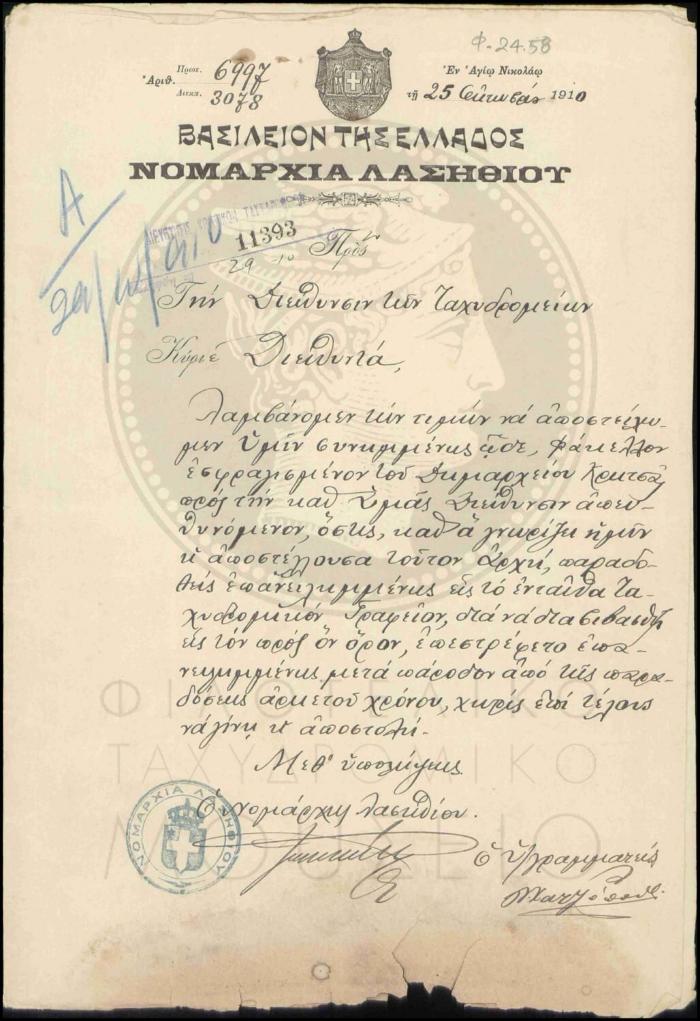 Φ-24.58
Ἀριθ. Πρωτ. 6997
Διεκπ. 3078
Ἐν Ἁγίῳ Νικολάῳ
τῇ 25 Ὀκτωβρίου 1910
ΒΑΣΙΛΕΙΟΝ ΤΗΣ ΕΛΛΑΔΟΣ
ΝΟΜΑΡΧΙΑ ΛΑΣΗΘΙΟΥ
11393
29 10
Πρὸς
Τὴν Διεύθυνσιν τῶν Ταχυδρομείων
Κύριε Διευθυντά,
Λαμβάνομεν τὴν τιμὴν νὰ ἀποστείλω-
μεν Ὑμῖν συνημμένως ὧδε, φάκελλον
ἐσφραγισμένον τοῦ Δημαρχείου Κριτσᾶς
πρὸς τὴν καθ' Ὑμᾶς Διεύθυνσιν ἀπευ-
θυνόμενον, ὅστις, καθ' ἃ γνωρίζει ἡμῖν
ἡ ἀποστέλλουσα τοῦτον Ἀρχή, παραδο-
θεὶς ἐπανειλημμένως εἰς τὸ ἐνταῦθα Τα-
χυδρομικὸν Γραφεῖον, διὰ νὰ διαβιβασθῇ
εἰς τὸν πρὸς ὃν ὅρον, ἐπεστρέφετο ἐπα-
νειλημμένως μετὰ πάροδον ἀπὸ τῆς παρα-
δόσεως ἀρκετοῦ χρόνου, χωρὶς ἐπὶ τέλους
νὰ γίνῃ ἡ ἀποστολή.
Μεθ' ὑπολήψεως
Ὁ Νομάρχης Λασηθίου.
Ὁ Γραμματεὺς
ΝΟΜΑΡΧΙΑ ΛΑΣΗΘΙΟΥ
ΦΙΛΟΤΕΛΙΚΟ
ΤΑΧΥΔΡΟΜΙΚΟ
ΜΟΥΣΕΙΟ